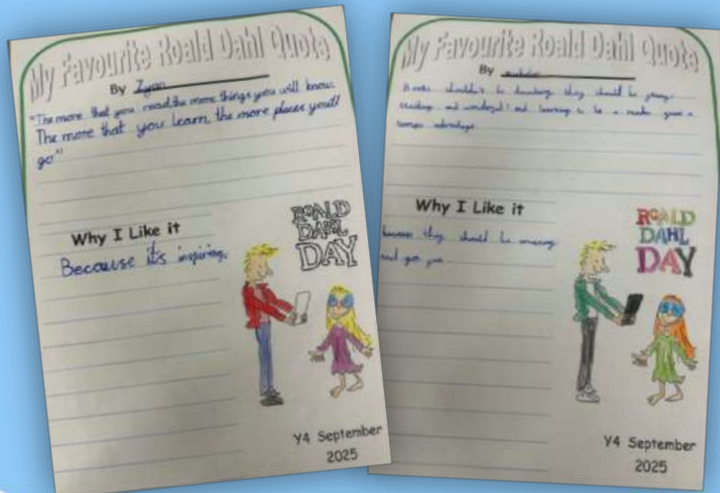 My Favourite Roald Dahl Quote
By
"The more that you read the more things you will know.
The more that you learn, the more places you'll
go"
Why I Like it
Because it's inspiring.
ROALD
DAHL
DAY
Y4 September
2025
My Favourite Roald Dahl Quote
By
Books shouldn't be daunting, they should be funny,
exciting and wonderful: and learning to be a reader gives a
advantage
Why I Like it
because they should be amazing
and
ROALD
DAHL
DAY
Y4 September
2025